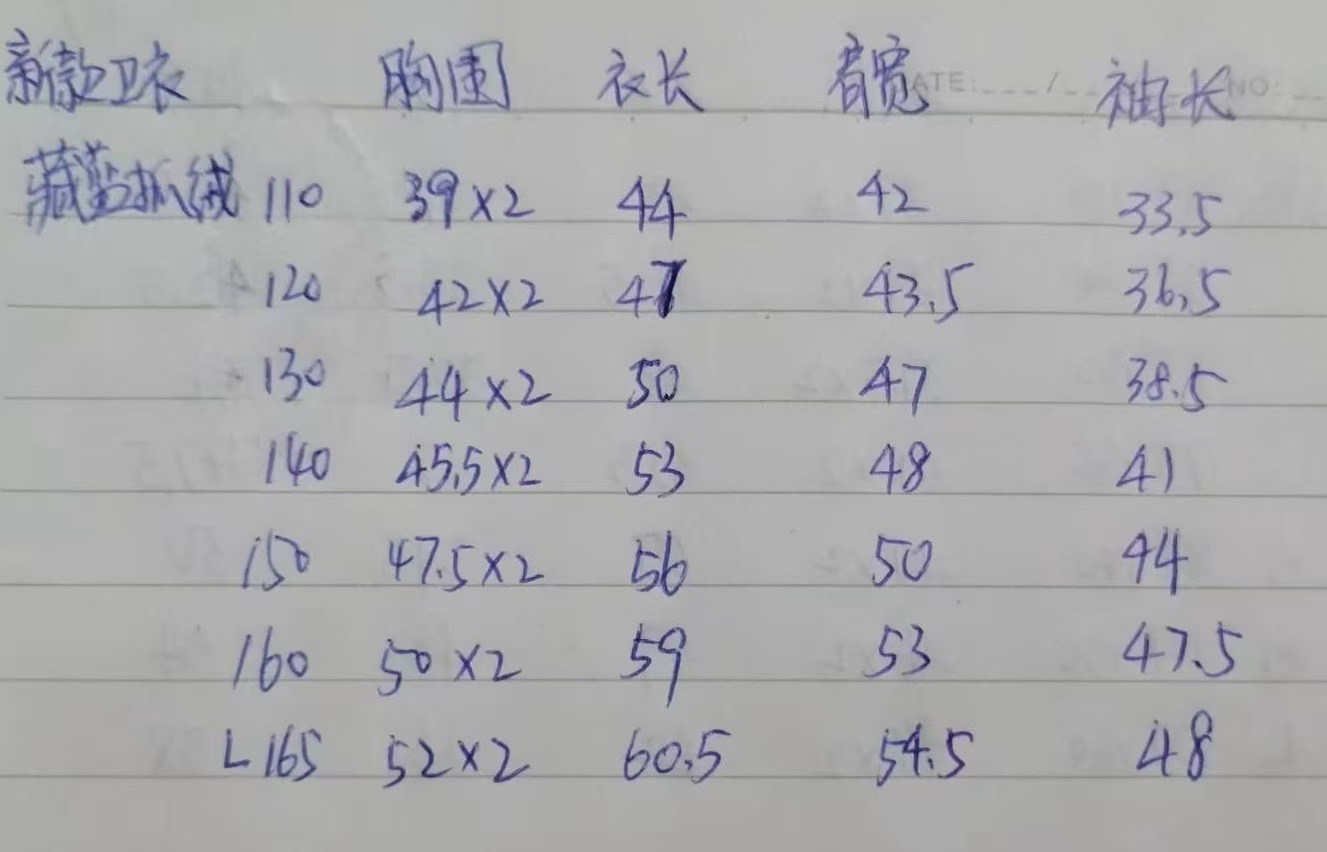 新款卫衣 胸围 衣长 肩宽 袖长
DATE: / NO:
藏蓝抓绒 110 39×2 44 42 33.5
120 42×2 47 43.5 36.5
130 44×2 50 47 38.5
140 45.5×2 53 48 41
150 47.5×2 56 50 44
160 50×2 59 53 47.5
L165 52×2 60.5 54.5 48